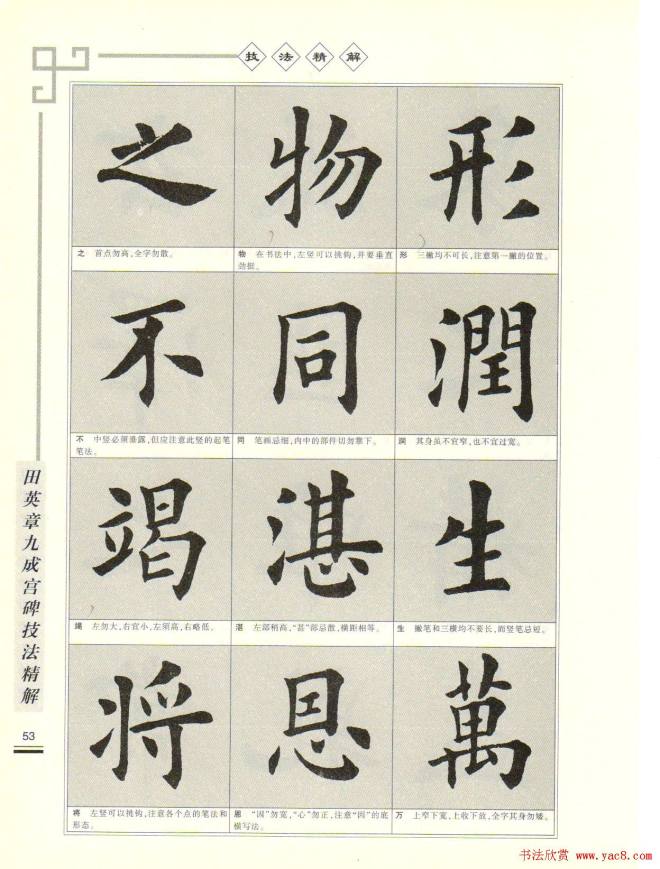 技法精解
之
物
形
之 首点勿高,全字勿散。
物 在书法中,左竖可以挑钩,并要垂直
劲挺。
形 三撇均不可长,注意第一撇的位置。
不
同
潤
不 中竖必须垂露,但应注意此竖的起笔
笔法。
同 笔画忌细,内中的部件切勿靠下。
润 其身虽不宜窄,也不宜过宽。
竭
湛
生
竭 左勿大,右宜小,左须高,右略低。
湛 左部稍高,“甚”部忌散,横距相等。
生 撇笔和三横均不要长,而竖笔忌短。
将
恩
萬
将 左竖可以挑钩,注意各个点的笔法和
形态。
恩 “因”勿宽,“心”勿正,注意“因”的底
横写法。
万 上窄下宽,上收下放,全字其身勿矮。
田英章九成宫碑技法精解
53
书法欣赏 www.yac8.com